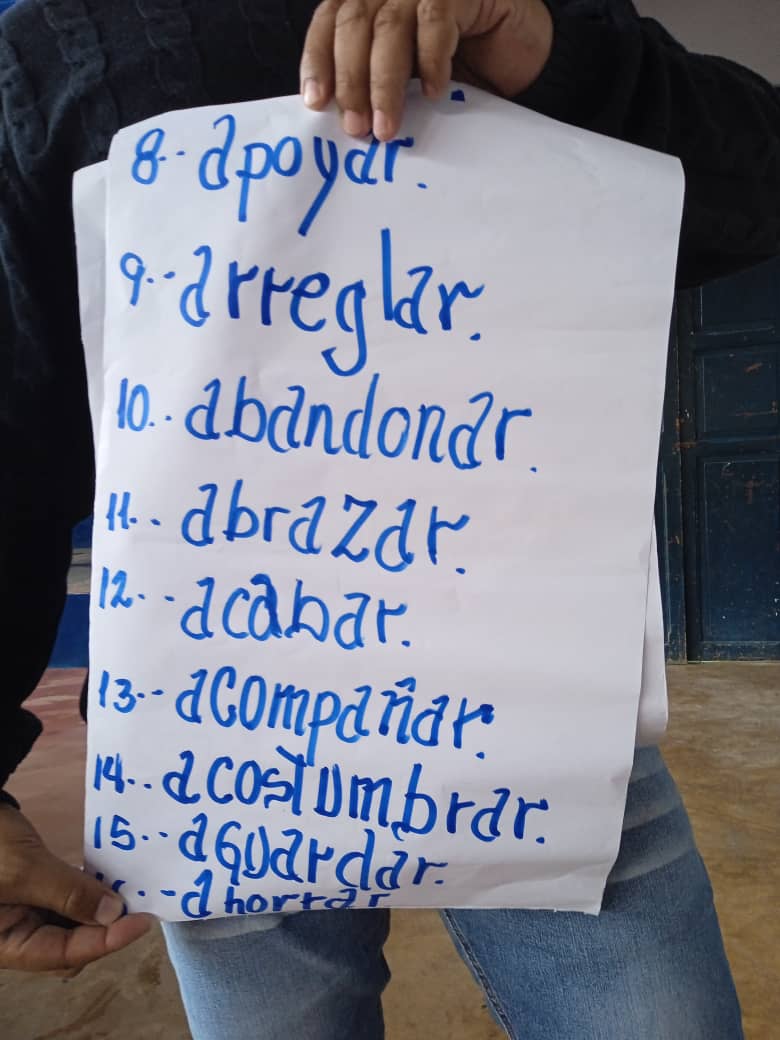 8.- apoyar.
9.- arreglar.
10.- abandonar.
11.- abrazar.
12.- acabar.
13.- acompañar.
14.- acostumbrar.
15.- aguardar.
16.- ahorrar